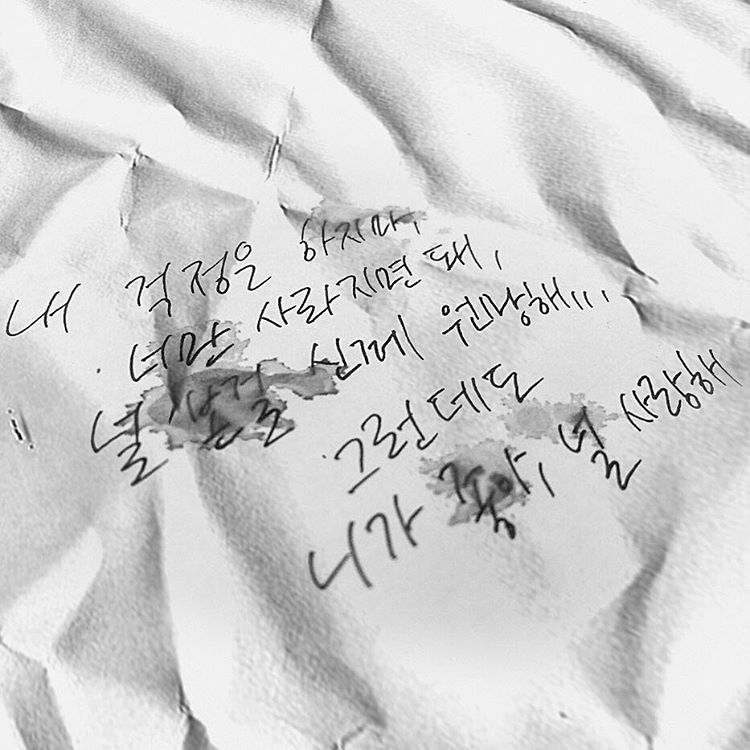 내 걱정은 하지마,
너만 사라지면돼,
널 신께 원망해,,,
그런데도
니가 좋아, 널 사랑해